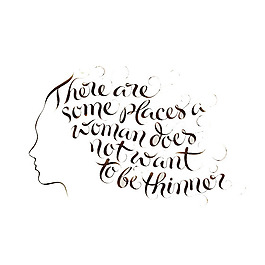 There are
some places a
woman does
not want
to be thinner